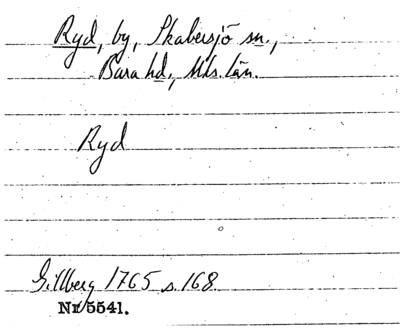 Ryd, by, Skabersjö sn.,
Bara hd., Mls. län.
Ryd
Gillberg 1765 s. 168.
Nr 5541.